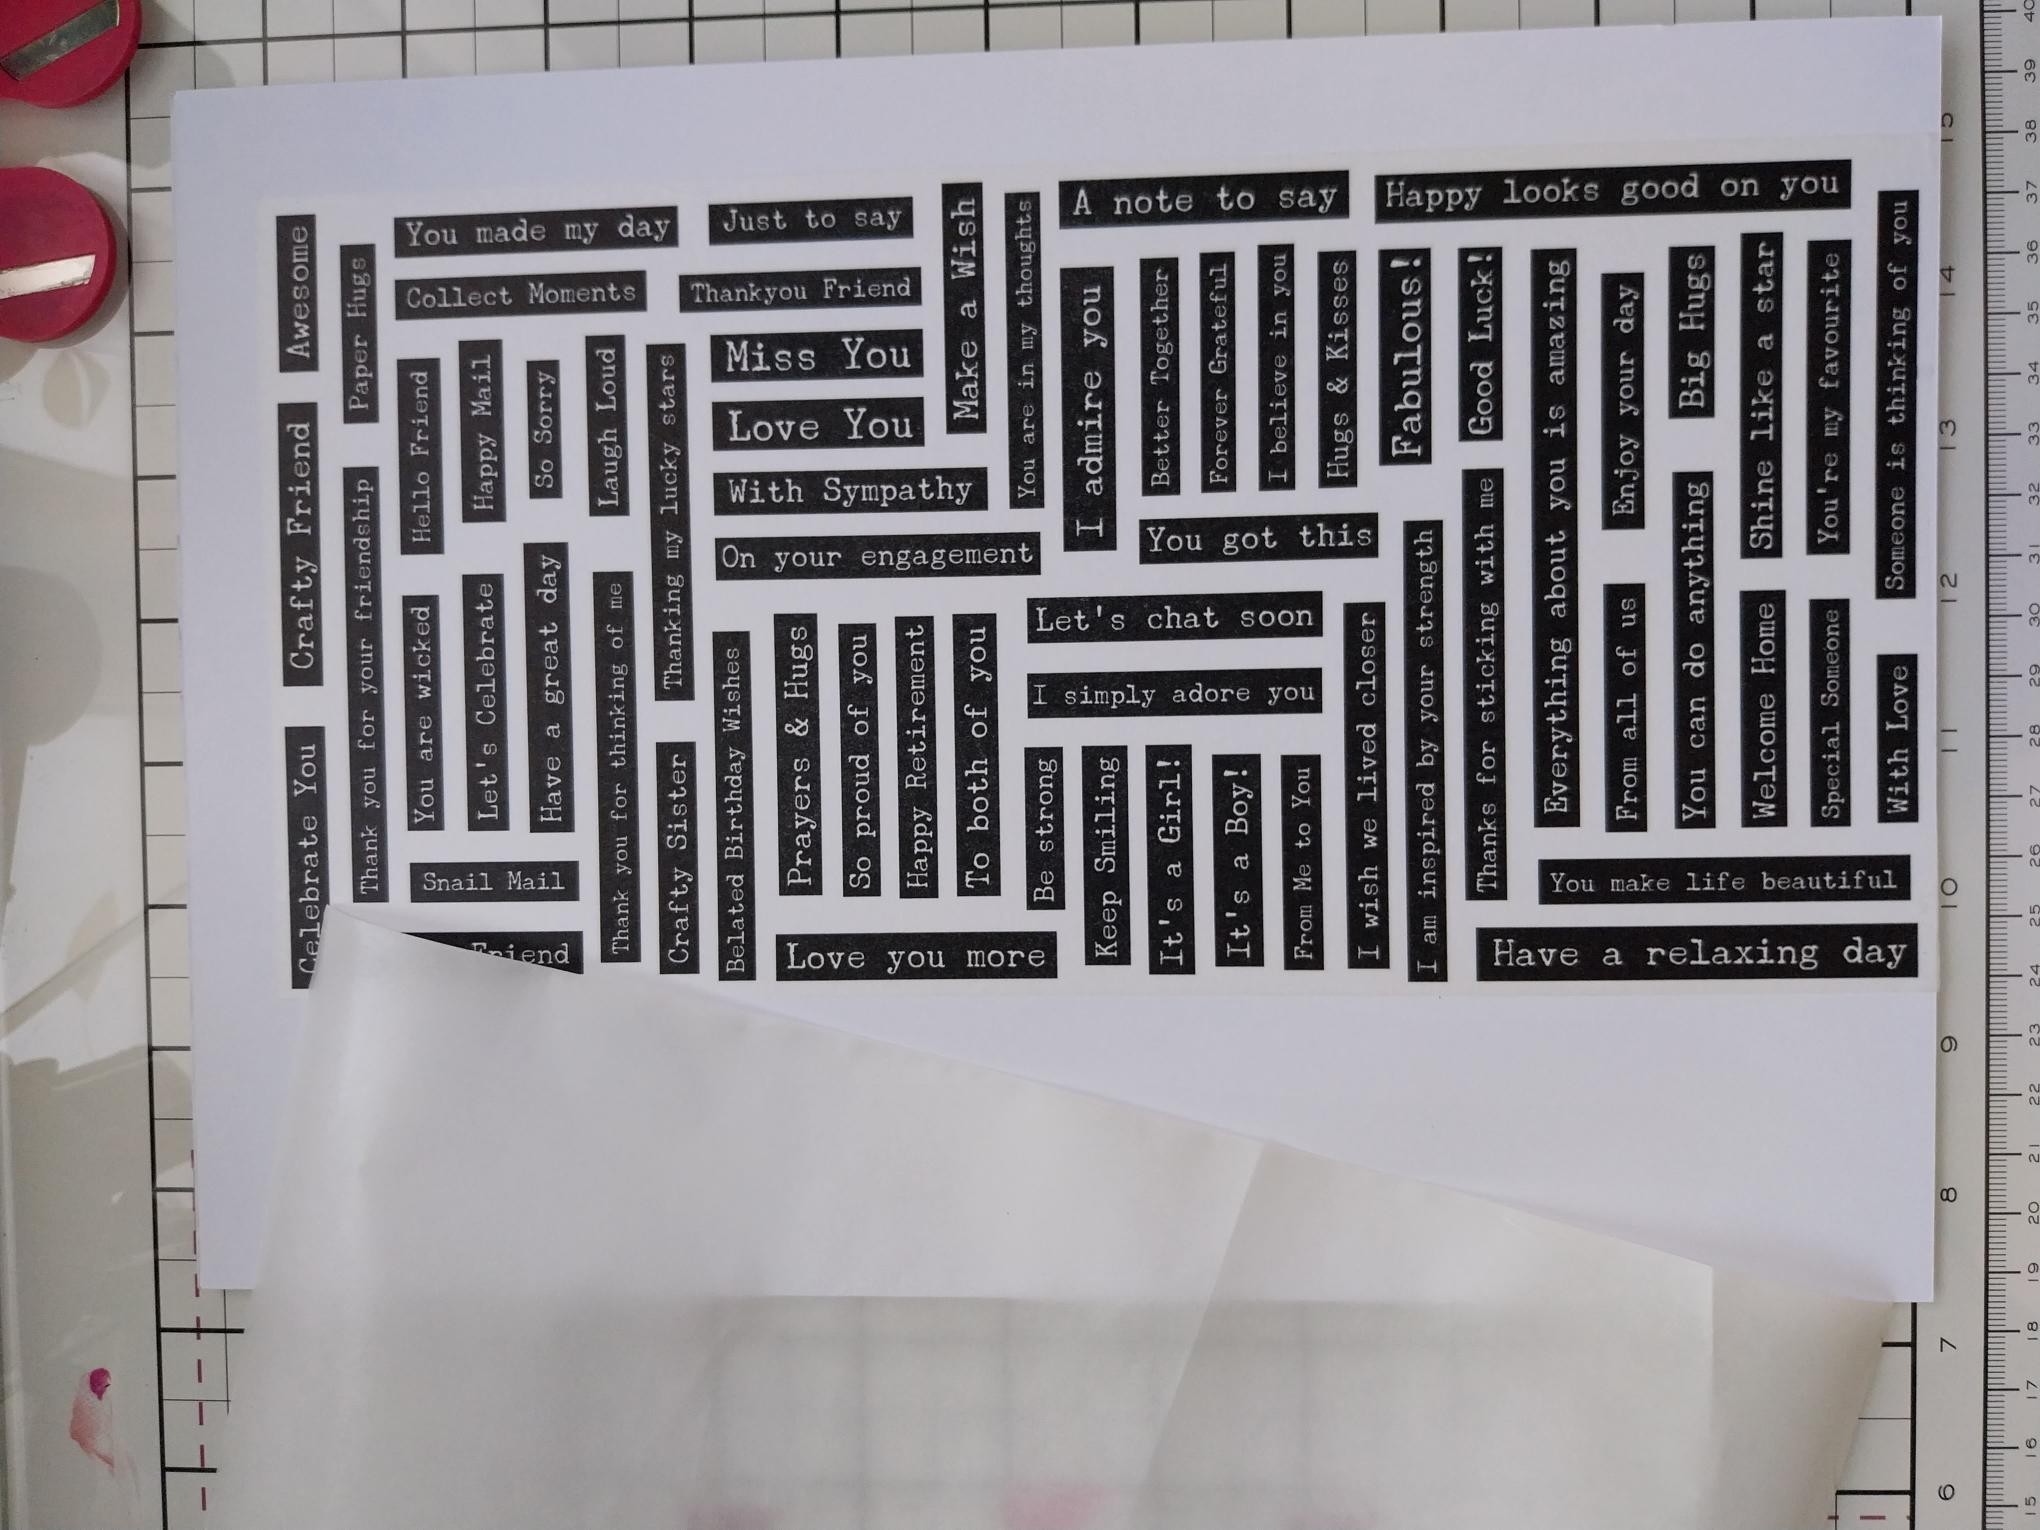 Awesome
Crafty Friend
Celebrate You
Paper Hugs
Thank you for your friendship
You made my day
Collect Moments
Hello Friend
You are wicked
Happy Mail
Let's Celebrate
So Sorry
Have a great day
Laugh Loud
Thank you for thinking of me
Snail Mail
Friend
Thanking my lucky stars
Crafty Sister
Just to say
Thankyou Friend
Miss You
Love You
With Sympathy
On your engagement
Belated Birthday Wishes
Prayers & Hugs
So proud of you
Happy Retirement
To both of you
Love you more
Make a Wish
You are in my thoughts
A note to say
I admire you
Better Together
Forever Grateful
I believe in you
Hugs & Kisses
You got this
Let's chat soon
I simply adore you
Be strong
Keep Smiling
It's a Girl!
It's a Boy!
From Me to You
I wish we lived closer
I am inspired by your strength
Happy looks good on you
Fabulous!
Good Luck!
Thanks for sticking with me
Everything about you is amazing
Enjoy your day
From all of us
Big Hugs
You can do anything
Shine like a star
Welcome Home
You're my favourite
Special Someone
Someone is thinking of you
With Love
You make life beautiful
Have a relaxing day
15
14
13
12
11
10
9
8
7
6
40
39
38
37
36
35
34
33
32
31
30
29
28
27
26
25
24
23
22
21
20
19
18
17
16
15